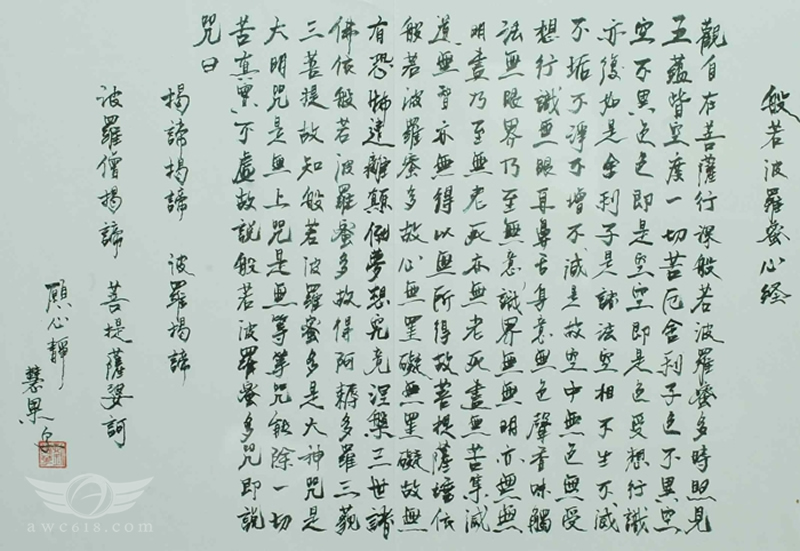 般若波羅蜜心経
觀自在菩薩行深般若波羅蜜多時照見
五蘊皆空度一切苦厄舍利子色不異空
空不異色色即是空空即是色受想行識
亦復如是舍利子是諸法空相不生不滅
不垢不淨不增不減是故空中無色無受
想行識無眼耳鼻舌身意無色聲香味觸
法無眼界乃至無意識界無無明亦無無
明盡乃至無老死亦無老死盡無苦集滅
道無智亦無得以無所得故菩提薩埵依
般若波羅蜜多故心無罣礙無罣礙故無
有恐怖遠離顛倒夢想究竟涅槃三世諸
佛依般若波羅蜜多故得阿耨多羅三藐
三菩提故知般若波羅蜜多是大神咒是
大明咒是無上咒是無等等咒能除一切
苦真實不虛故說般若波羅蜜多咒即說
咒曰
揭諦揭諦 波羅揭諦
波羅僧揭諦 菩提薩婆訶
願心靜
awc618.com